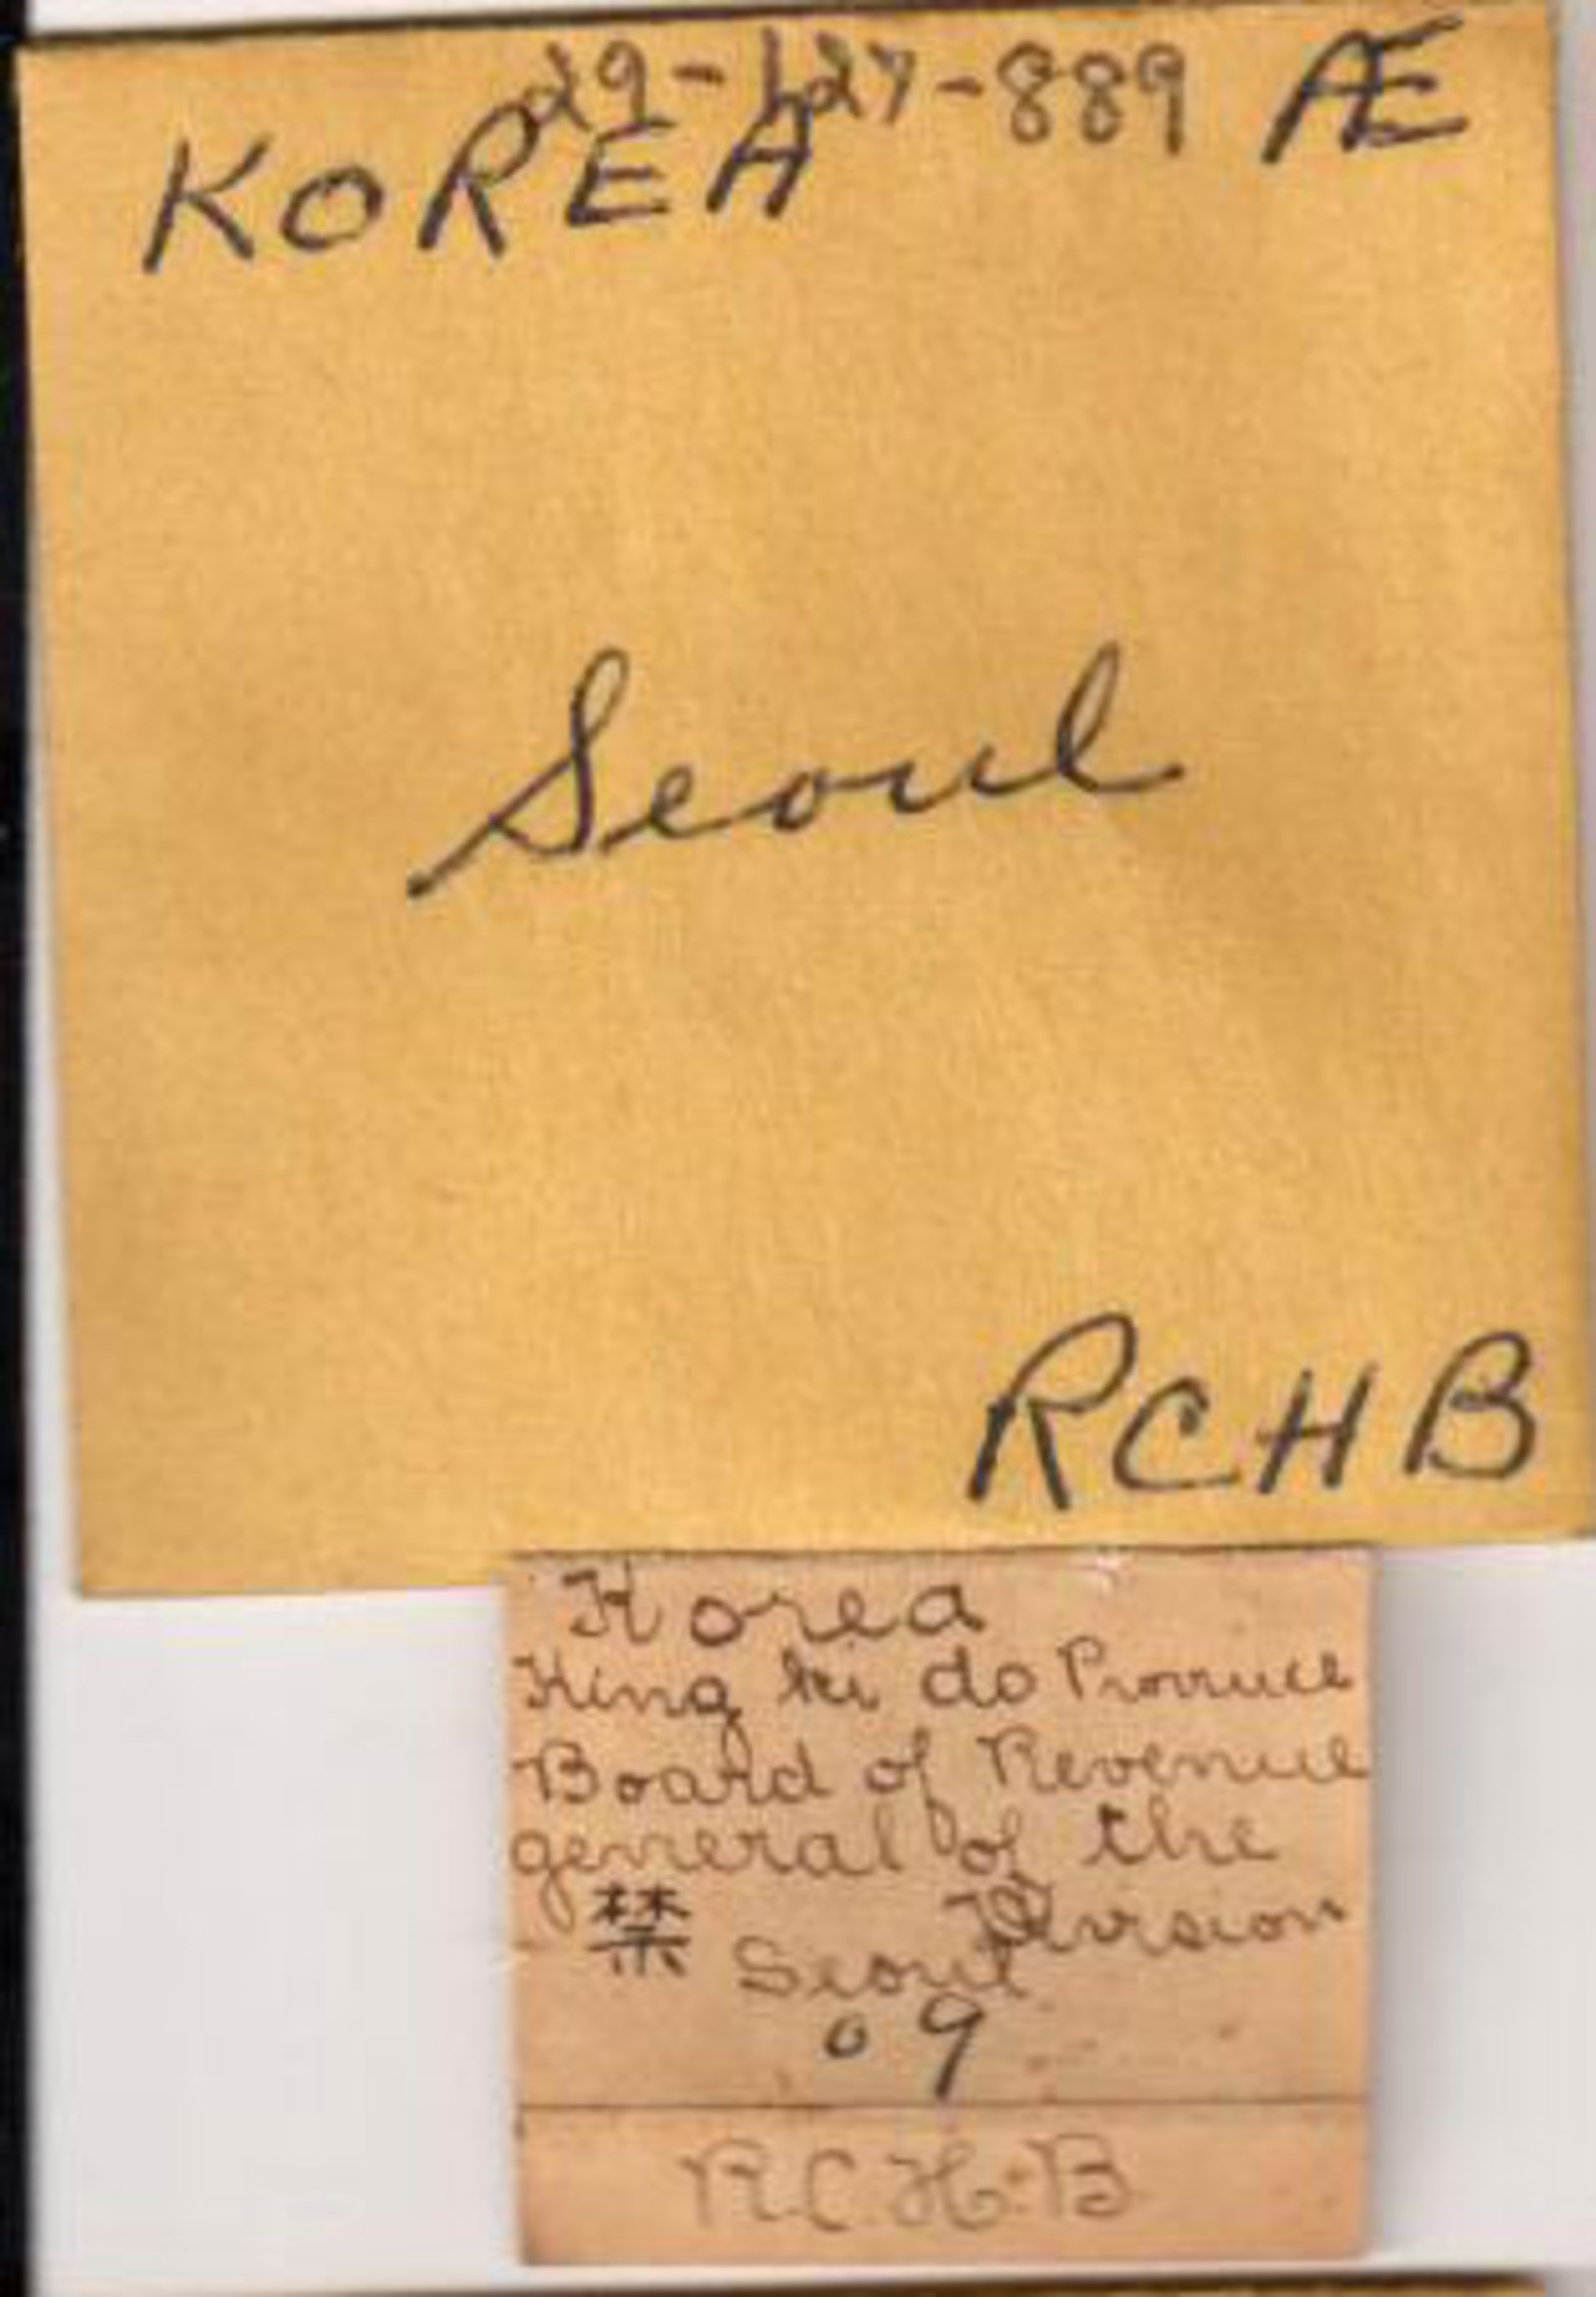 29-127-889 Æ
KOREA
Seoul
RCHB
Korea
King ki do Province
Board of Revenue
general of the
禁 Division
Seoul
09
R.C.H.B